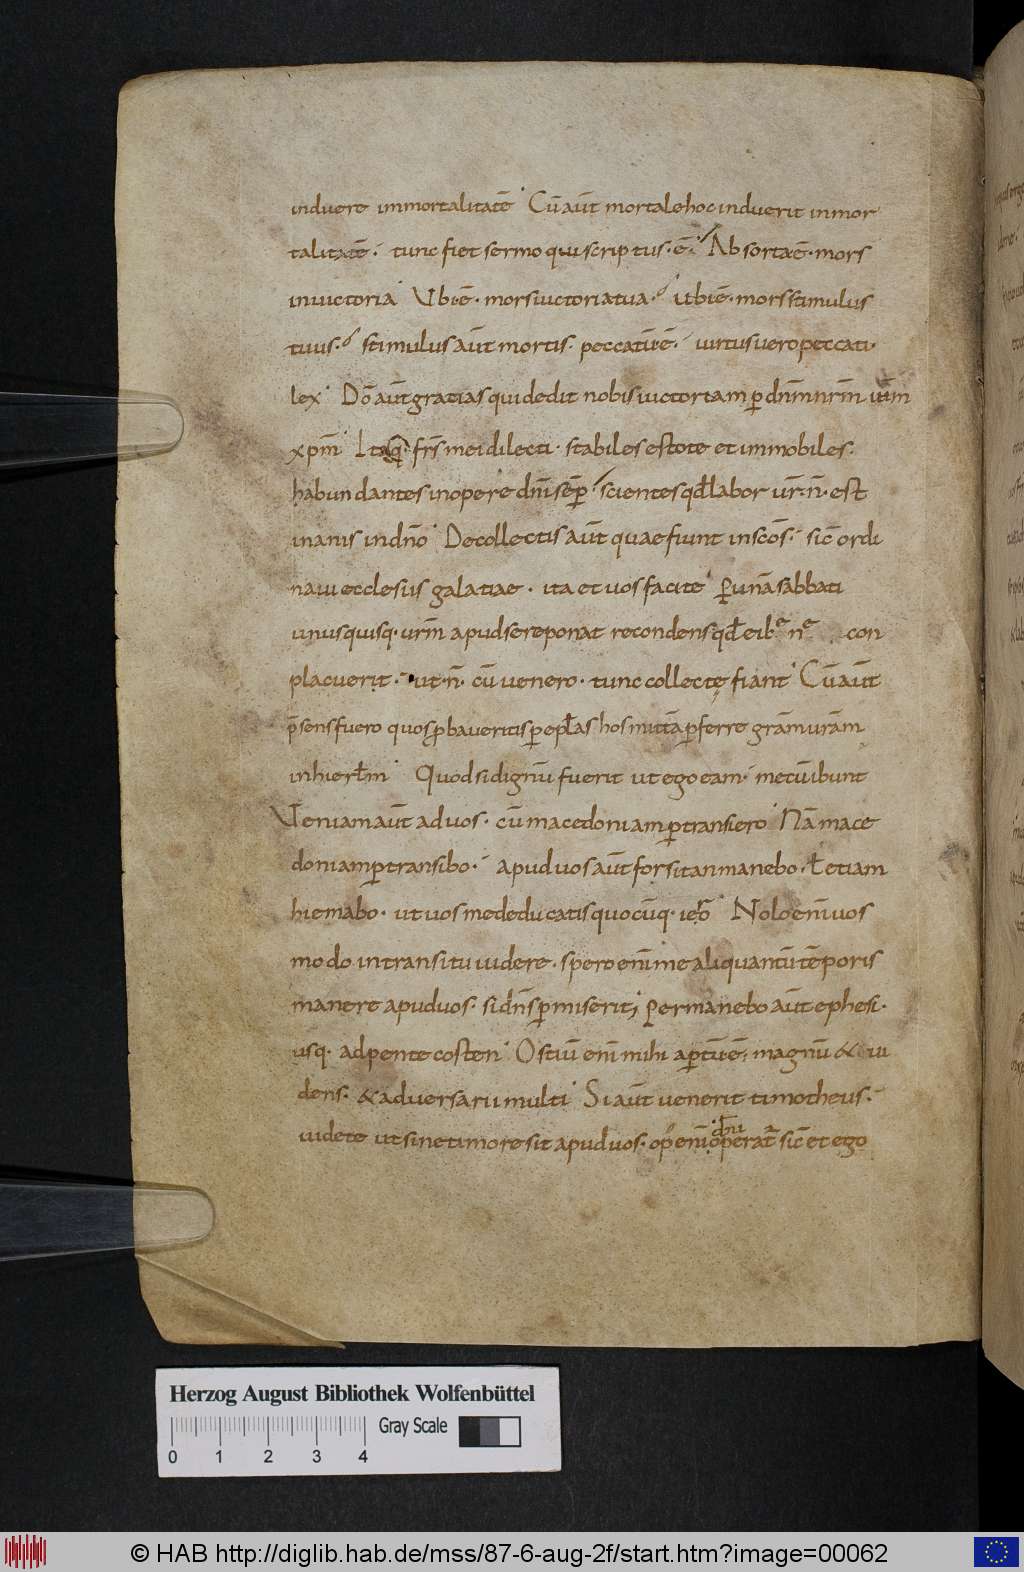 induere immortalitatē Cū aūt mortale hoc induerit inmor
talitatē. tunc fiet sermo qui scriptus. ē. Absorta ē. mors
in uictoria Ubi ē. mors uictoria tua. ubi ē. mors stimulus
tuus. stimulus aūt mortis. peccatū ē. uirtus uero peccati.
lex Dō aūt gratias qui dedit nobis uictoriam p dnm nrm ihm
xpm Itaq. frs mei dilecti. stabiles estote et immobiles.
habundantes in opere dni semp scientes qđ labor ur. n̄. est
inanis in dno De collectis aūt quae fiunt in scōs. sic ordi
naui ecclesiis galatiae. ita et uos facite P unā sabbati
unusquisq. urm apud se reponat recondens qđ ei b n con
placuerit. ut. n̄. cū uenero. tunc collectę fiant Cū aūt
p̄sens fuero quos pbaueritis p eplas hos mittā pferre gram uram
in hierlm Quod si dignū fuerit ut ego eam. mecū ibunt
Ueniam aūt ad uos. cū macedoniam ptransiero Nā mace
doniam ptransibo. apud uos aūt forsitan manebo. ł etiam
hiemabo. ut uos me deducatis quocūq. iero Nolo enī uos
modo in transitu uidere. spero enī me aliquantū tēporis
manere apud uos. si dns pmiserit; Permanebo aūt ephesi.
usq. ad pentecosten Ostiū enī mihi aptū ē. magnū & iu
dens. & aduersarii multi Si aūt uenerit timotheus.
uidete ut sine timore sit apud uos. op enī dni operat sic et ego
Herzog August Bibliothek Wolfenbüttel
Gray Scale
0 1 2 3 4
© HAB http://diglib.hab.de/mss/87-6-aug-2f/start.htm?image=00062